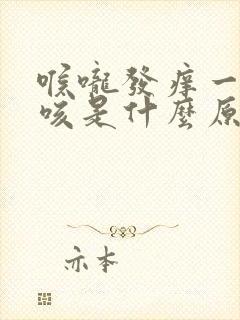 喉嚨發痒一
咳是什麼原
亦本